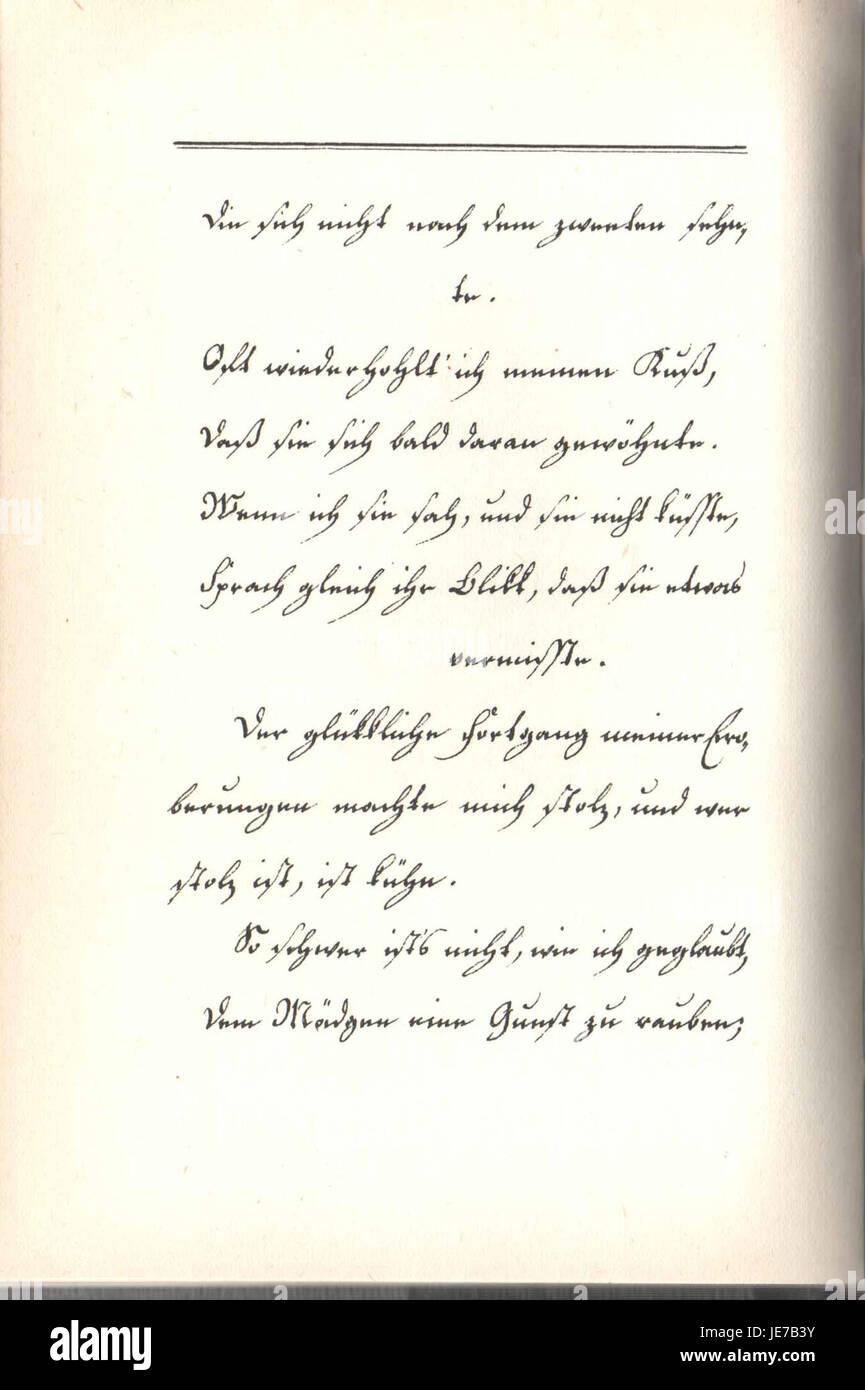 Die sich nicht nach dem zweeten sehn,
te.
Oft wiederhohlt' ich meinen Kuß,
Daß sie sich bald daran gewöhnte.
Wenn ich sie sah, und sie nicht küsste,
Sprach gleich ihr Blikk, daß sie etwas
vermisste.
Der glükkliche Fortgang meiner Ero,
berungen machte mich stolz, und wer
stolz ist, ist kühn.
So schwer ist's nicht, wie ich geglaubt,
Dem Mädgen eine Gunst zu rauben;
a
a
a
a
a
alamy
Image ID: JE7B3Y
www.alamy.com